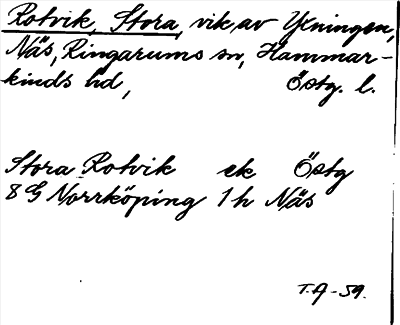 Rotvik, Stora, vik av Yxningen,
Näs, Ringarums sn, Hammar-
kinds hd, Östg. l.
Stora Rotvik ek Östg
8G Norrköping 1h Näs
T.A-59.